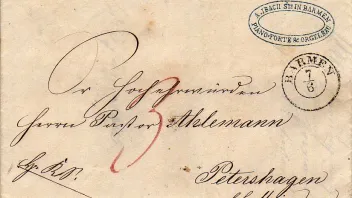 AD. IBACH Söhne IN BARMEN
PIANO-FORTE & ORGELBR
BARMEN
7/6
Sr Hochehrwürden
Herrn Pastor Ahlemann
3
Petershagen